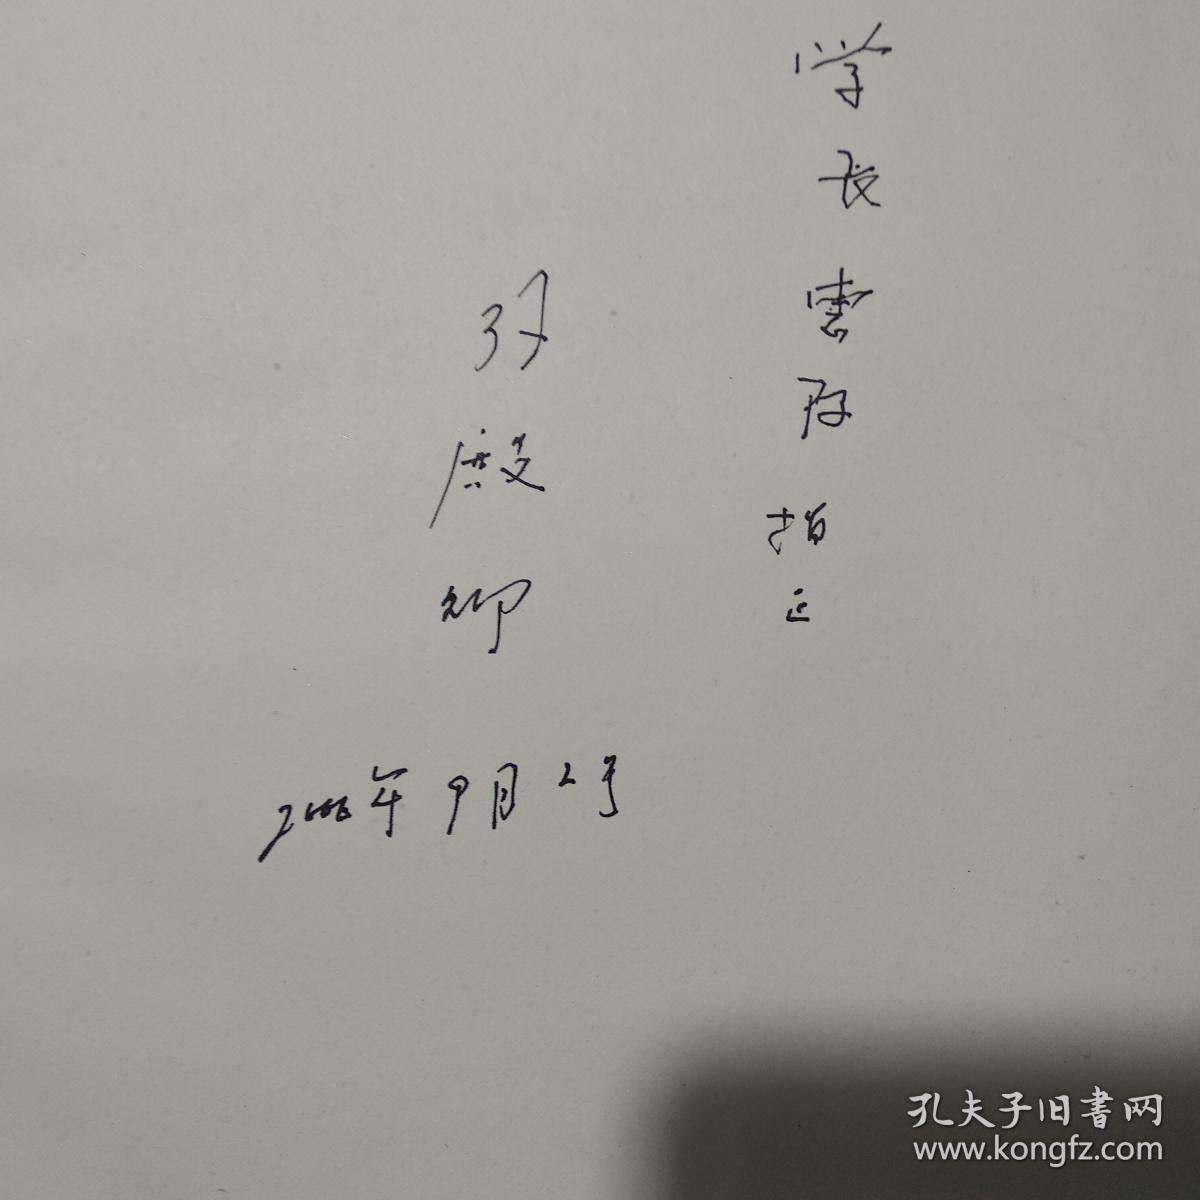 学长雲
指正
殿
卿
2006年9月2号
孔夫子旧書网
www.kongfz.com